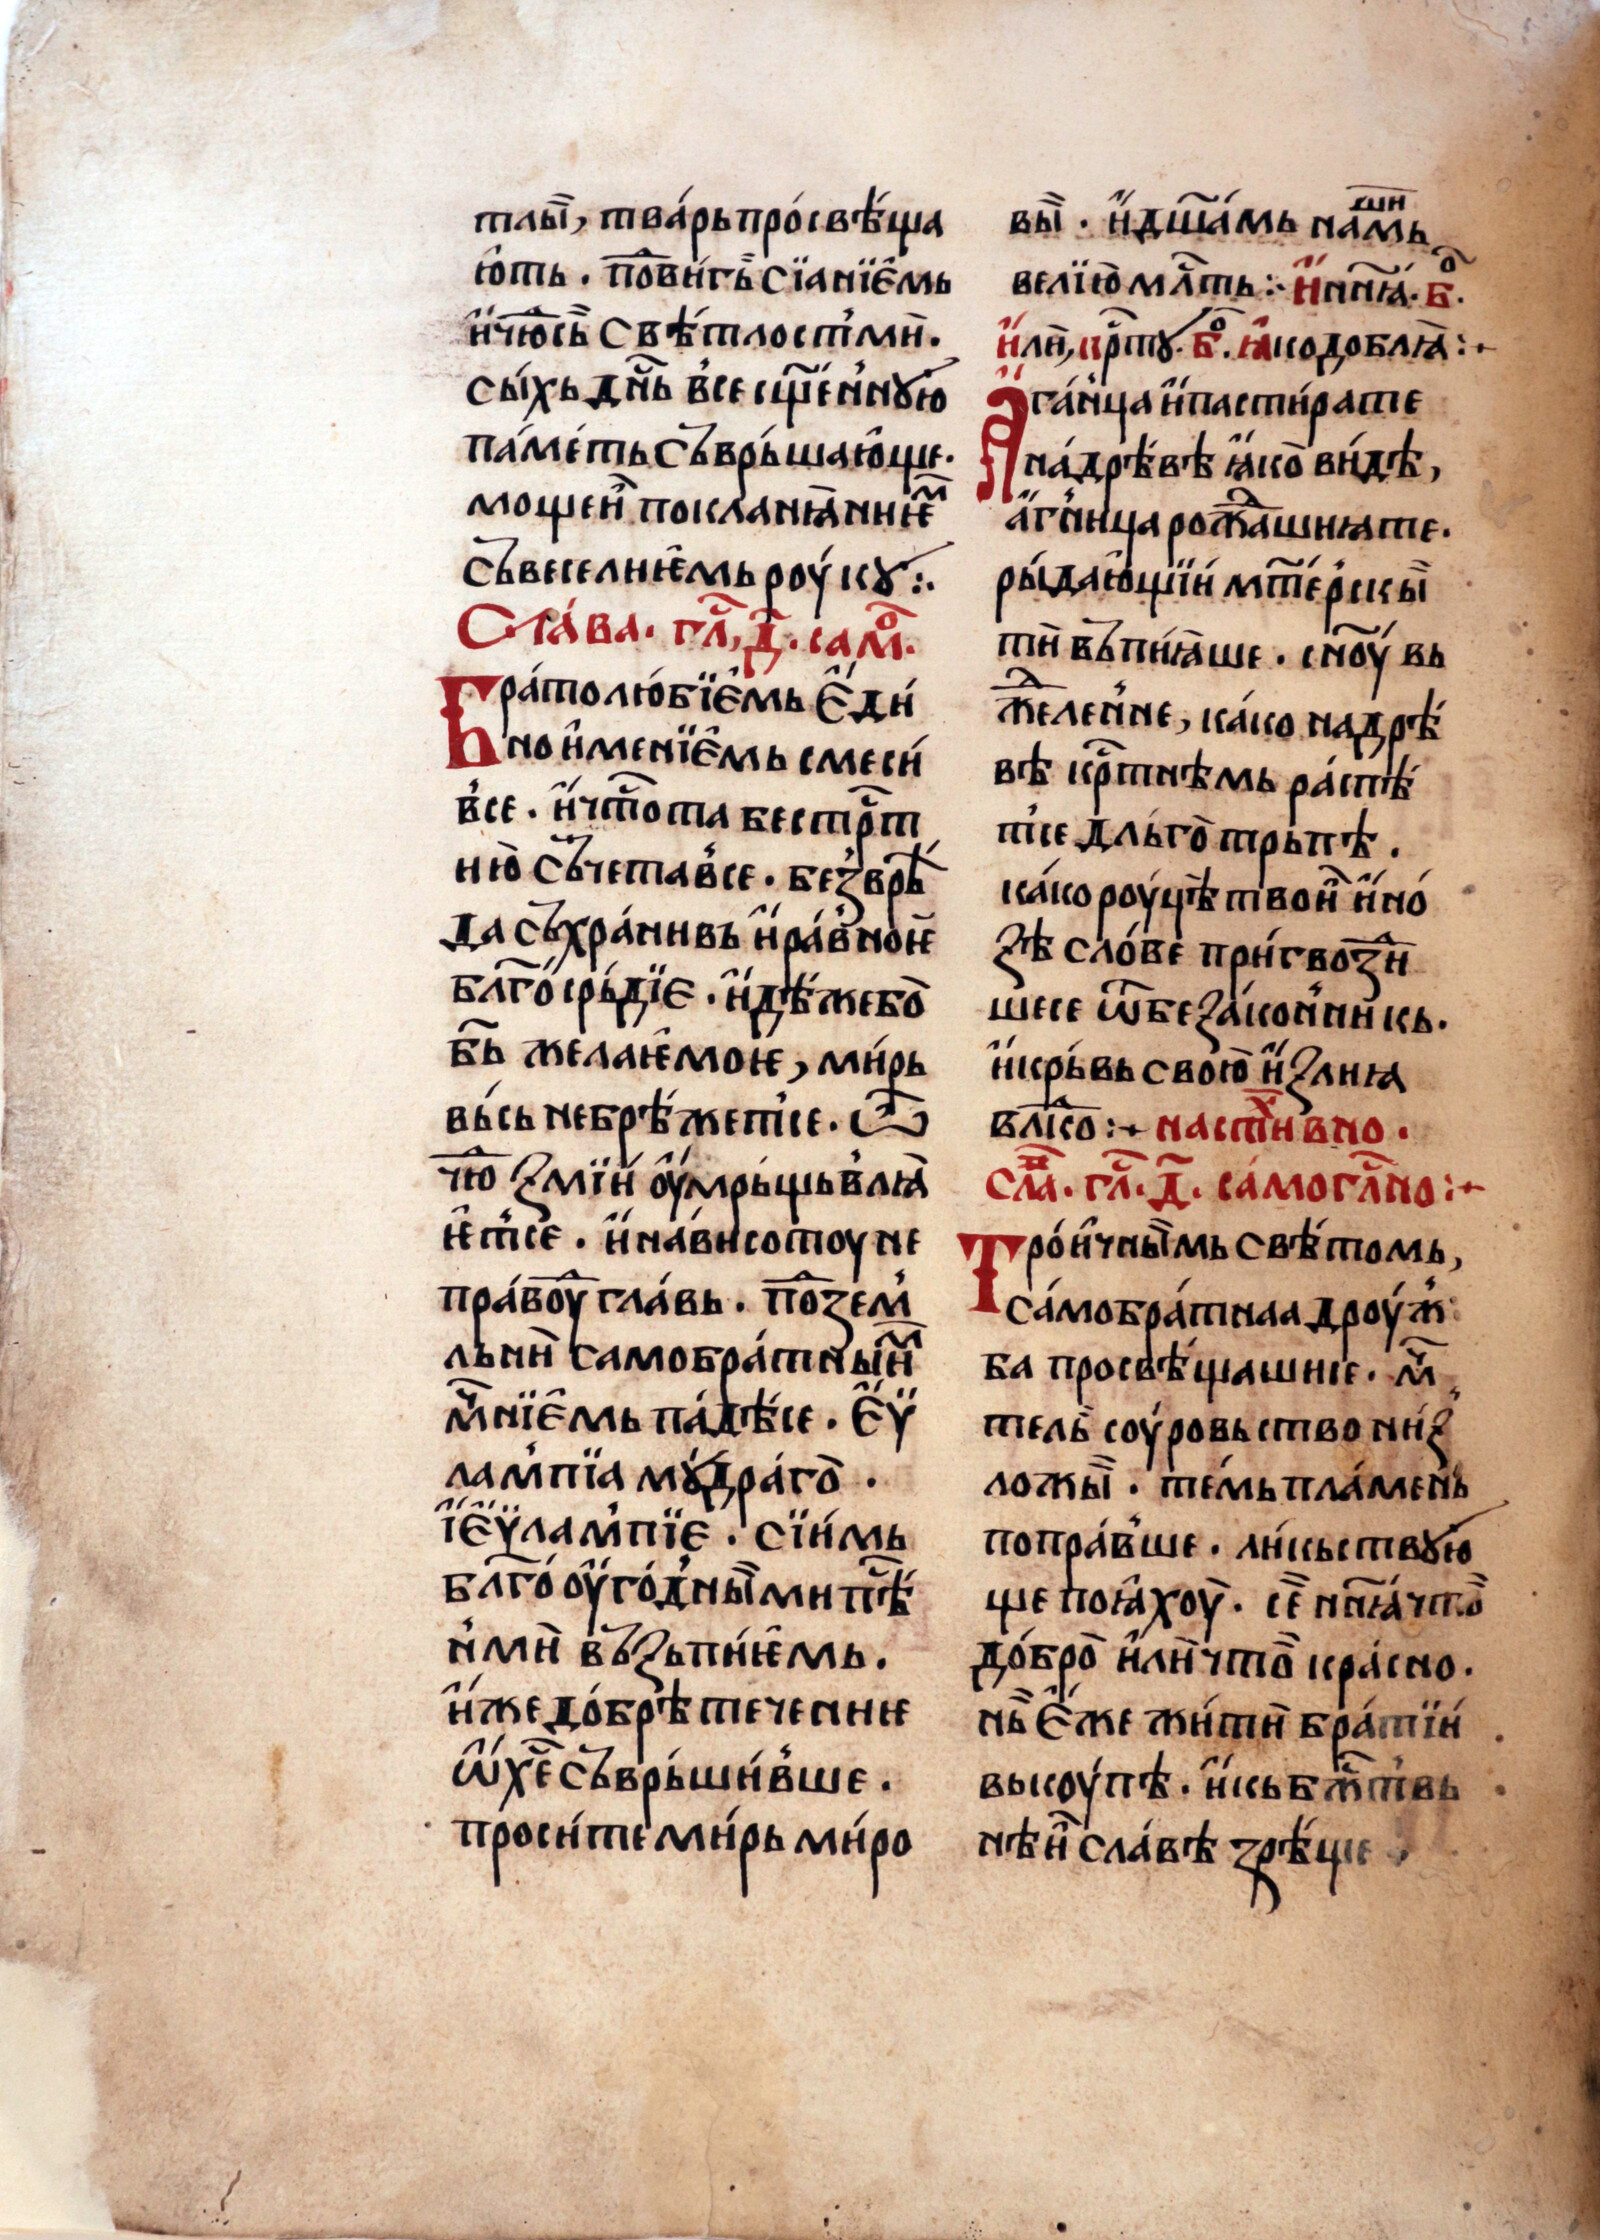 тлы҃, тва́рь про́свѣ́ща
ю҆ть. по҃ви́гь҃ сїанїѐмь
и҆ чю҃сь҃ свѣ́тлост҆ми҃.
сы́хь дн҃ь в҆се сщ҃е́н҆ную҆
па́ме́ть съврь́шаю҆ще.
мощеи҃ покланꙗ҃нниѥ҃ⷨ
съвеселиѥ҆мь роу́кꙋ :.
Сла́ва. гл҃, д҃. самⷪ҃.
Бра́толю́бїѐмь є҆ди́
но и҆менїѐмь смеси́
в҆се. и҆ чт҃ота бестрⷭ҇т
ню҃ съчетав҆се. без҆врѣ́
да съхра́нивь и҆ ра́в҆ноѥ҃
блг҃о́срь́дїє. и҆дѣ́жебо҃
бь҃ желаѥ҆моѥ, ми́рь
вь́сь небрѣ́жет҆се. ѡ҃
чю҃ ꙁмїи́ оу҆мрь́щьв҆лꙗ҃
ѥ҆т҆се. и҆ на́висотоу не
пра́воу҃ гла́вь. по҃зем҆
льни҃ самобра́тны́иⷨ
мч҃нїѐмь па́дѣ́се. є҆ѵ̈
лам҆пїа мꙋ́дра́го҃.
і҆є҆ѵ̈лам҆пїє. сїи́мь
блг҃о́оу҆го́д҆ны҃ми пⷭ҇ѣ́
н҆ми҃ въꙁьпи́ѥ҆мь.
и҆же до́брѣ течение
ѡ҆ хⷭ҇е съврь́ши́в҆ше.
проси́те ми́рь ми́ро
вы҃. и҆ дш҃а́мь на́шимь
велїю҃ млⷭ҇ть :· и҆ нн҃ꙗ́. бⷪ҃.
и҆ли҃, крⷭ҇тꙋ. бⷪ҃. ꙗ҆ко доблꙗ҃ :·
А҆га́н҆ца и҆ пасти́ра те
на́ дрѣ́вѣ ꙗ҆ко҃ ви́дѣ,
а҆г҆ница рож҃а̂шиꙗ те.
ры́даю҆щїи́ мт҃е́р҆скы҃
ти҃ въпи́ꙗ҆ше. сн҃оу́ вь
жⷣелен҆не, ка́ко на дрѣ́
вѣ крⷭ҇тнѣмь ра́спѣ́
т҆се дль́го҃ трьпѣ.
ка́ко роу́цѣ҃ твои҃ и҆ но́
ꙁѣ сло́ве при́гвоз҃и
шесе ѿ беꙁа́кон҆никь.
и҆ крь́вь свою҃ и҆ꙁлиꙗ
влⷣко :· на стⷯ҃ивно.
слⷡ҃а. гл҃. д҃. са́могл҃но :·
Тро́и҆чны҃мь свѣ́томь,
са́мобра́тнаа дроу́ж҆
ба просвѣ́щашисе. мч҃
тель҃ соу́ровьство ни́ꙁ
ложы҃. те́мь пла́мень҃
попра́в҆ше. ли́кьствꙋю҆
ще поꙗ҆хоу҃. се҃ нн҃ꙗ́ что҃
до́бро҃ и҆ли҃ что҃ кра́сно.
нь҃ є҆же жи́ти҃ бра́тїи́
вькоу́пѣ. и҆ кь бжⷭ҇т҆вь
нѣи҃ сла́вѣ зрѣ́ще